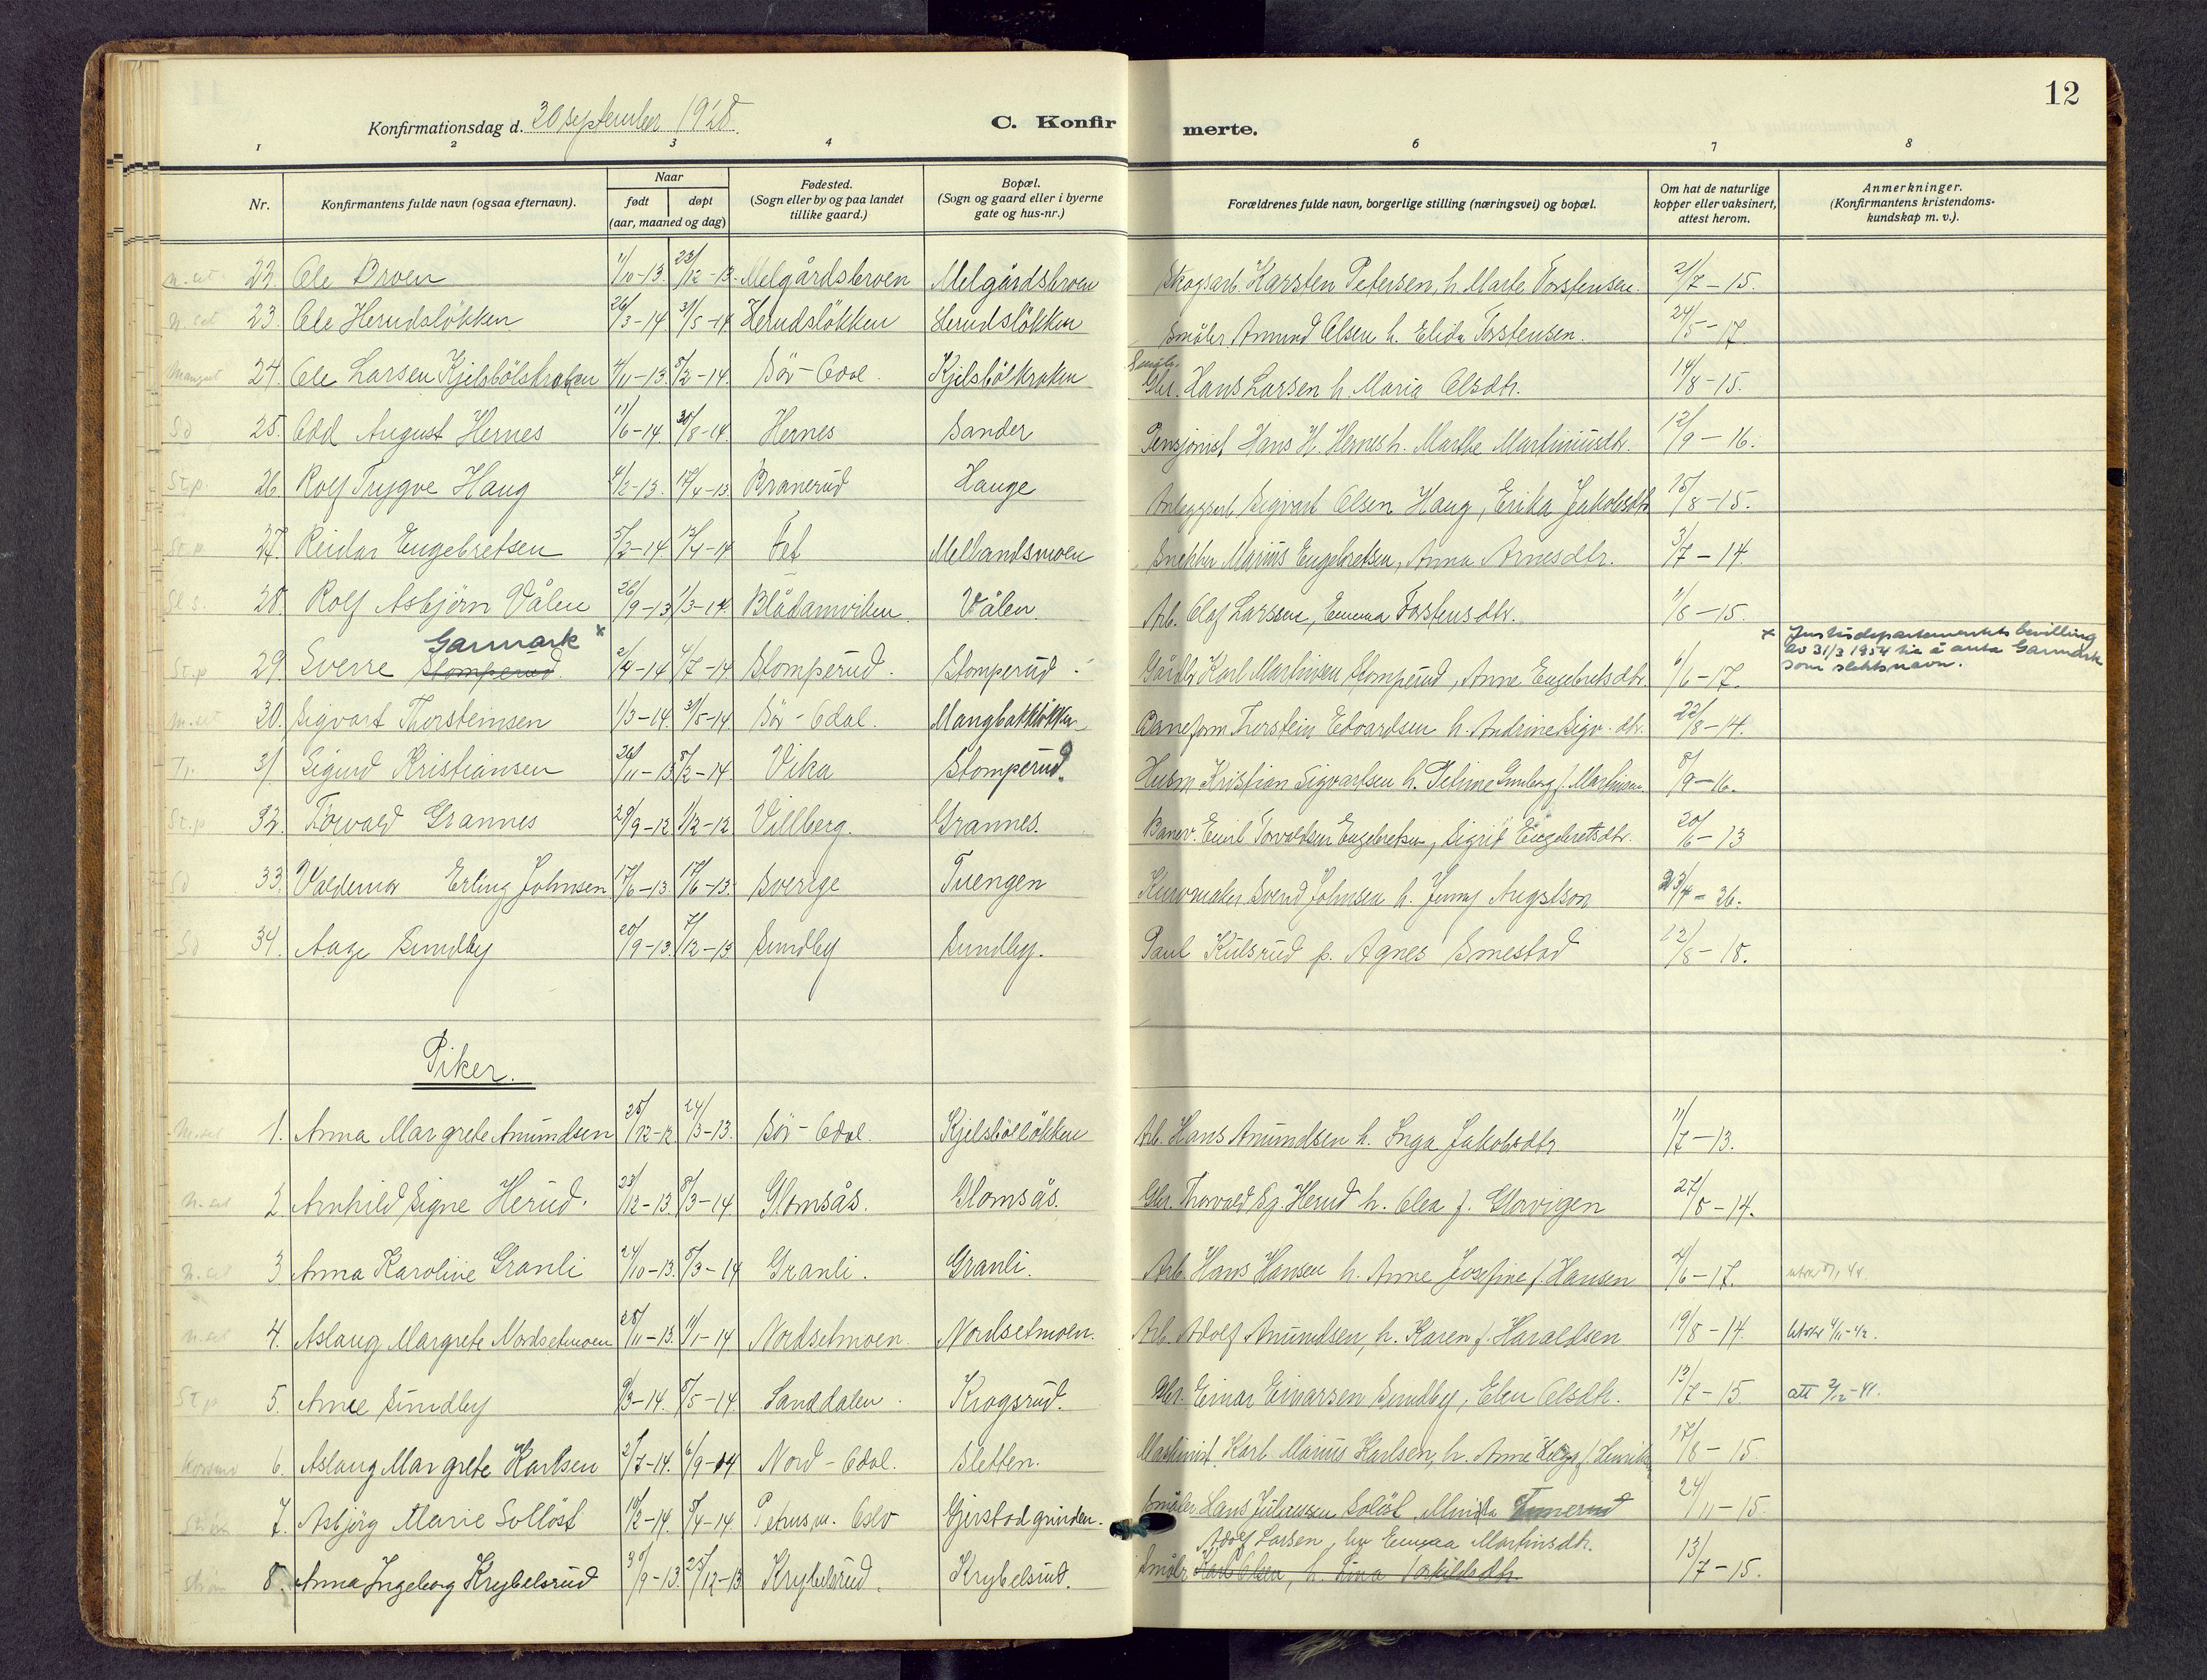 12
Konfirmationsdag d. 30 september 1928.
C. Konfirmerte.
1 2 3 4 6 7 8
Nr.
Konfirmantens fulde navn (ogsaa efternavn).
Naar
født
døpt
(aar, maaned og dag)
Fødested.
(Sogn eller by og paa landet
tillike gaard.)
Bopæl.
(Sogn og gaard eller i byerne
gate og hus-nr.)
Forældrenes fulde navn, borgerlige stilling (næringsvei) og bopæl.
Om hat de naturlige
kopper eller vaksinert,
attest herom.
Anmerkninger.
(Konfirmantens kristendoms-
kundskap m. v.).
22. Ole Broen 11/10-13 23/12-13. Melgårdsbroen Melgårdsbroen Skogsarb. Karsten Petersen, h. Marte Torstensen. 2/7-15.
23. Ole Herudsløkken 26/3-14 31/5-14 Herudsløkken Herudsløkken Småbr. Amund Olsen h. Elida Torstensen. 24/5-17.
24. Ole Larsen Kjelsbølskroken 4/11-13. 8/2-14. Sör-Odal Kjelsbølkroken Småbr. Gbr. Hans Larsen h. Maria Olsdtr. 14/8-15.
Sd 25. Odd August Hernes 11/6-14. 30/8-14. Hernes Sander Pensjonist Hans H. Hernes h. Marthe Martiniusdtr. 12/9-16.
St.p. 26. Rolf Trygve Haug 4/2-13. 17/4-13. Branerud Hauge Anleggsarb. Sigvart Olsen Haug, Erika Jakobsdtr 15/8-15.
St.p 27. Reidar Engebretsen 5/2-14. 12/4-14 Fet Mellandsmoen Snekker Marius Engebretsen, Anna Arnesdtr. 3/7-14.
Sl s. 28. Rolf Asbjörn Vålen 26/9-13 1/3-14. Blådamviken Vålen Arb. Olaf Larssen, Emma Torstensdtr. 11/8-15.
Garmark x
St.p 29. Sverre Stomperud. 2/4-14 4/7-14 Stomperud. Stomperud. Gårdbr. Karl Martinsen Stomperud, Anne Engebretsdtr. 6/6-17. x Justisdepartementets bevilling
av 31/3 1954 til å anta Garmark
som slektsnavn.
M.set 30. Sigvart Thorsteinsen 1/3-14. 31/5-14. Sör-Odal. Mangbakkløkken Baneform Thorstein Edvardsen h. Andrine Sigv. dtr. 22/8-14.
31 Sigurd Kristiansen 26/11-13 8/2-14. Vika Stomperud. Husm Kristian Sigvartsen h. Petrine Gunborg f. Martinsen. 8/9-16.
St.p 32. Torvald Grannes 29/9-12 1/12-12 Villberg. Grannes. Banev. Emil Torvaldsen Engebretsen, Sigrid Engebretsdtr. 20/6-13
Sd 33. Valdemar Erling Johnsen 17/6-13. 17/6-13. Sverige Tuengen Kurvmaker Svend Johnsen h. Jenny Augstson 23/4-26.
Sd 34. Aage Sundby 20/9-13. 7/12-13 Sundby Sundby. Paul Kulsrud p. Agnes Smestad 12/8-18.
Piker.
M.set 1. Anna Margrete Amundsen 25/12-12 24/3-13. Sör-Odal. Kjelsbølløkken Arb. Hans Amundsen h. Inga Jakobsdtr 11/7-13.
M.set 2. Arnhild Signe Herud. 23/12-13. 8/3-14 Glomsås. Glomsås. Gbr. Thorvald Sg. Herud h. Olea f. Glorvigen 27/8-14.
3 Anna Karoline Granli 24/10-13. 8/3-14 Granli. Granli. Arb. Hans Hansen h. Anne Josefine f. Hansen 4/6-17.
4. Aslaug Margrete Nordsetmoen 28/11-13. 11/1-14 Nordsetmoen. Nordsetmoen. Arb. Adolf Amundsen, h. Karen f. Haraldsen 19/8-14. 4/11-42.
St p 5. Anne Sundby 9/3-14. 8/5-14. Sanddalen. Krogsrud. Gbr. Einar Einarsen Sundby, Elen Olsdtr. 13/7-15 att 3/12-41.
6. Aslaug Margrete Karlsen 2/7-14. 6/9-14 Nord-Odal. Sletten. Maskinist. Karl Marius Karlsen, h. Anne Helga f. Henriks 17/8-15
7. Asbjörg Marie Solløst 10/2-14. 5/4-14. Petrus m. Oslo Gjerstadgrinden. Småbr. Hans Juliussen Soløst, Minda Tunerud 24/11-15.
Adolf Larsen, h. Emma Martinsdtr.
8. Anna Ingeborg Krybelsrud 30/9-13. 25/12-13 Krybelsrud. Krybelsrud. Småbr. Karl Olsen, h. Lina Torkildsdtr. 13/7-15.